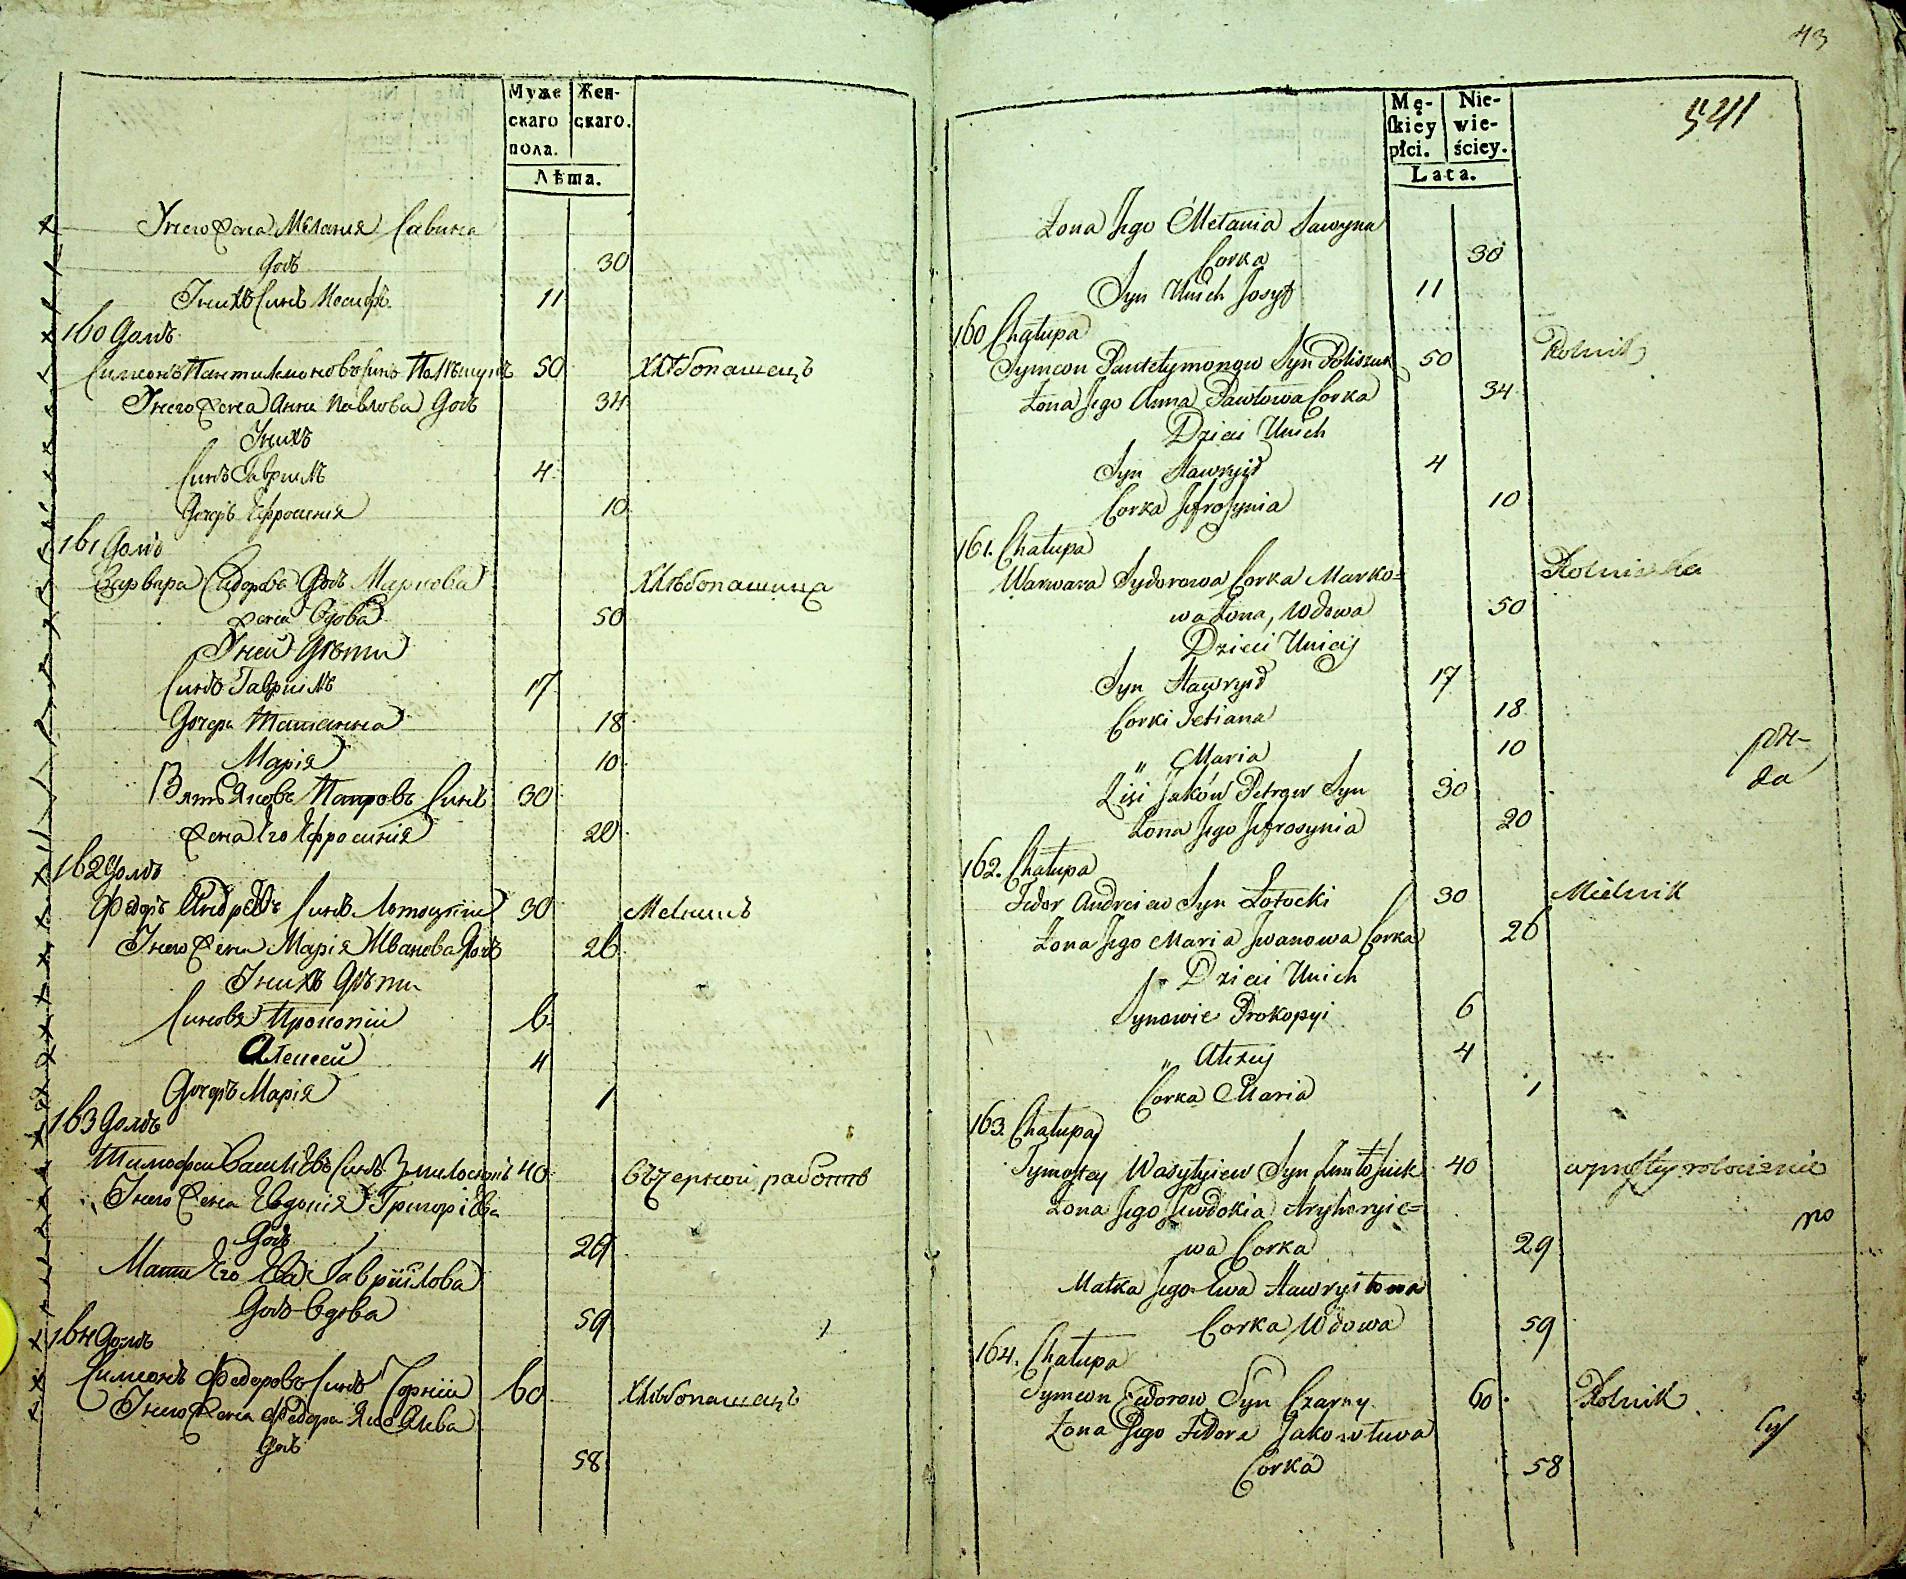 Муже
скаго
пола.
Жен-
скаго.
Лѣта.
Унего жена Мелания Савина
дочь 30
Унихъ Синъ Иосифъ 11
160 Домъ
Симеонъ Пантилимоновъ Синъ Полѣщукъ 50 Хлѣбопашецъ
Унего жена Анна Павлова дочь 34
Унихъ
Синъ Гавриилъ 4
Дочерь Ефросиния 10
161 Домъ
Варвара Сидорова дочь Маркова Хлѣбопашица
жена Вдова 50
Уней Дѣти
Синъ Гавриилъ 17
Дочери Татианна 18
Марія 10
Зять Яковъ Петровъ Синъ 30
жена Его Ефросинія 20
162 Домъ
Федоръ Андреевъ Синъ Лотоцкій 30 Мелникъ
Унего жена Марія Иванова дочь 26
Унихъ Дѣти
Синовя Прокопій 6
Алексей 4
Дочерь Марія 1
163 Домъ
Тимофей Василіевъ Синъ 40 въ черной работѣ
Унего жена Евдокія Григоріева
дочь 29
Мати Его Ева Гавриілова
дочь вдова 59
164 Домъ
Симеонъ Федоровъ Синъ Чорній 60 Хлѣбопашецъ
Унего жена Федора
дочь 58
43
541
Mę-
skiey
płci.
Nie-
wie-
ściey.
Lata.
Żona Jego Mełania Sawyna
Corka 30
Syn Unich Josyf 11
160 Chałupa
Symeon Pantełymonow Syn Poliszuk 50 Rolnik
Żona Jego Anna Pawłowa Corka 34
Dzieci Unich
Syn Hawryił 4
Corka Jefrosynia 10
161. Chałupa
Warwara Sydorowa Corka Marko= Rolniczka
wa Żona, Wdowa 50
Dzieci Uniey
Syn Hawrył 17
Corki Tetiana 18
„ Maria 10
Zięć Jaków Petrow Syn 30
Żona Jego Jefrosynia 20
162. Chałupa
Fedor Andreiew Syn Łotocki 30 Mielnik
Żona Jego Maria Iwanowa Corka 26
Dzieci Unich
Synowie Prokopyi 6
„ Ałexey 4
Corka Maria 1
163. Chałupa
Tymoftey Wasylyiew Syn 40
Żona Jego Jewdokia Hryhoryie=
wa Corka 29
Matka Jego Ewa Hawryiłowa
Corka Wdowa 59
164. Chałupa
Symeon Fedorow Syn Czarny 60 Rolnik
Żona Jego Fedora
Corka 58